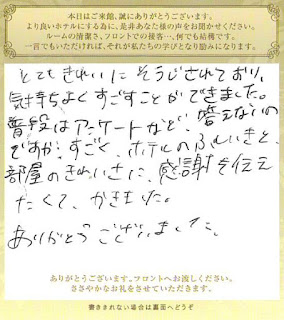 本日はご来館、誠にありがとうございます。
より良いホテルにする為に、是非あなた様の声をお聞かせください。
ルームの清潔さ、フロントでの接客…、何でも結構です。
一言でもいただければ、それが私たちの学びとなり励みになります。
とてもきれいにそうじされており、
気持ちよくすごすことができました。
普段はアンケートなど、答えないの
ですが、すごく、ホテルのふんいきと、
部屋のきれいさに、感謝を伝え
たくて、かきました。
ありがとうございました。
ありがとうございます。フロントへお渡しください。
ささやかなお礼をさせていただきます。
書ききれない場合は裏面へどうぞ